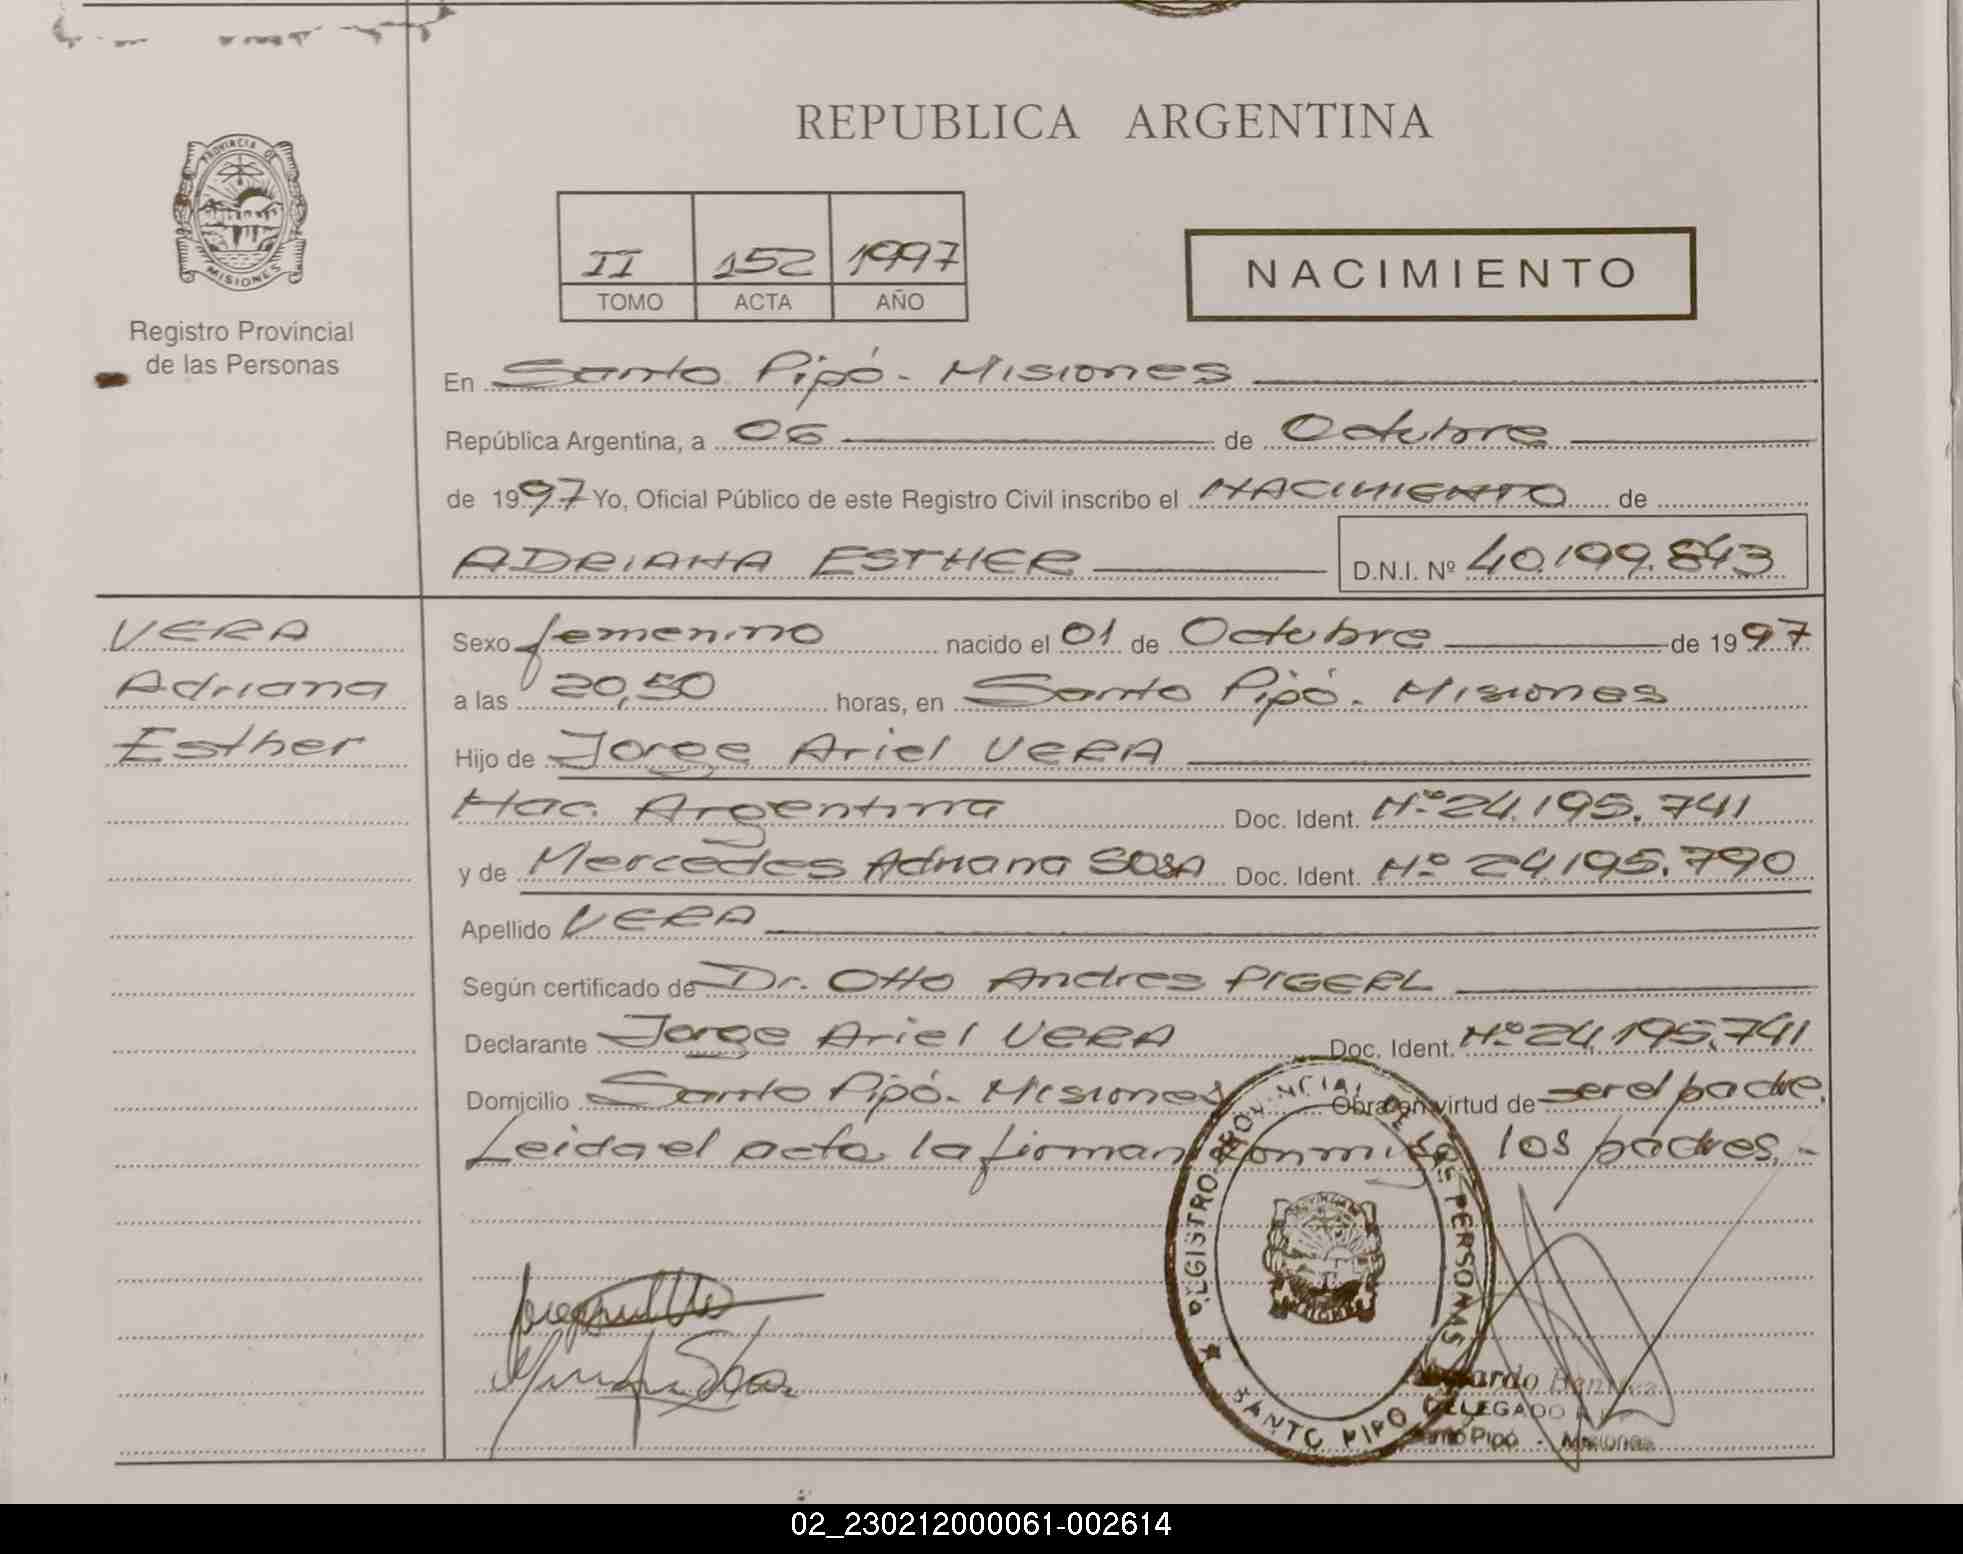 PROVINCIA DE
MISIONES
Registro Provincial
de las Personas
REPUBLICA ARGENTINA
II 152 1997
TOMO ACTA AÑO
NACIMIENTO
En Santo Pipó - Misiones
República Argentina, a 06 de Octubre
de 1997 Yo, Oficial Público de este Registro Civil inscribo el NACIMIENTO de
ADRIANA ESTHER D.N.I. Nº 40.199.843
VERA
Adriana
Esther
Sexo femenino nacido el 01 de Octubre de 1997
a las 20,50 horas, en Santo Pipó - Misiones
Hijo de Jorge Ariel VERA
Nac. Argentina Doc. Ident. Nº 24.195.741
y de Mercedes Adriana SOSA Doc. Ident. Nº 24.195.790
Apellido VERA
Según certificado de Dr. Otto Andres PIGERL
Declarante Jorge Ariel VERA Doc. Ident. Nº 24.195.741
Domicilio Santo Pipó - Misiones Obra en virtud de ser el padre.
Leida el acta la firman conmigo los padres. -
REGISTRO PROVINCIAL DE LAS PERSONAS
SANTO PIPO
DELEGADO
Santo Pipó - Misiones
02_230212000061-002614